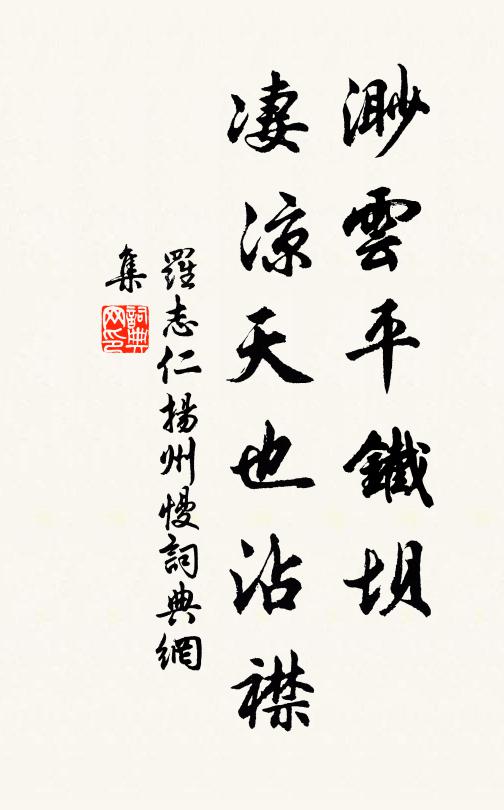 渺雲平鐵坝
凄涼天也沾襟
羅志仁揚州慢詞典網
集
詞典网印